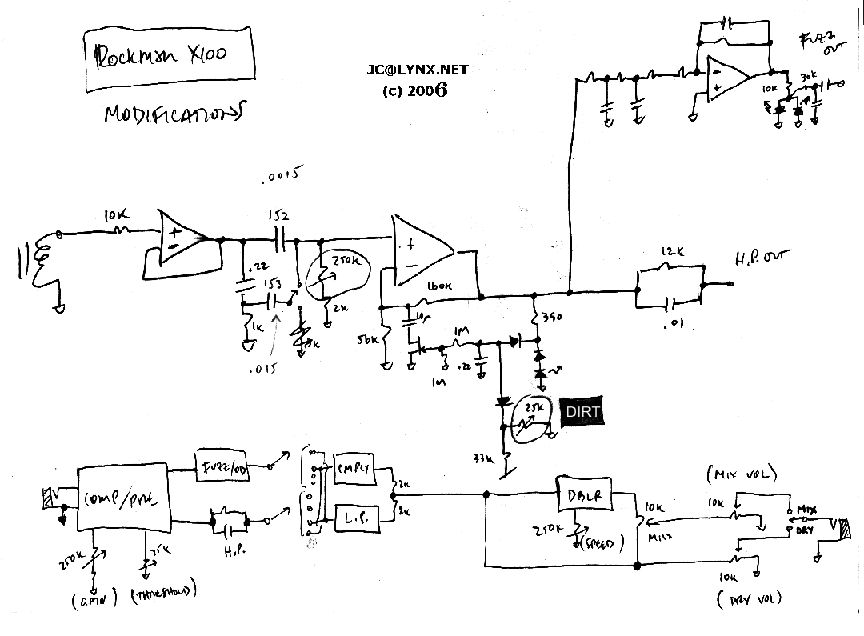 Rockman X100
MODIFICATIONS
JC@LYNX.NET
(c) 2006
FUZZ
OUT
10K
30K
.0015
10K
152
250K
.22
153
1K
2K
.015
160K
56K
10µ
1M
1M
.22
390
12K
.01
H.P. OUT
25K
DIRT
33K
COMP/PRE
FUZZ/OD
H.P.
250K
25K
(GAIN)
(THRESHOLD)
CMPLX
L.P.
2K
2K
DBLR
250K
(SPEED)
10K
MIX
(MIX VOL)
10K
MIX
DRY
10K
(DRY VOL)